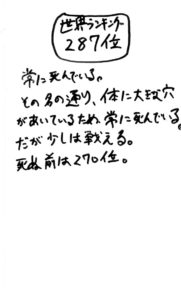 世界ランキング
287位
常に死んでいる。
その名の通り、体に大きな穴
があいているため常に死んでいる。
だが少しは戦える。
死ぬ前は270位。